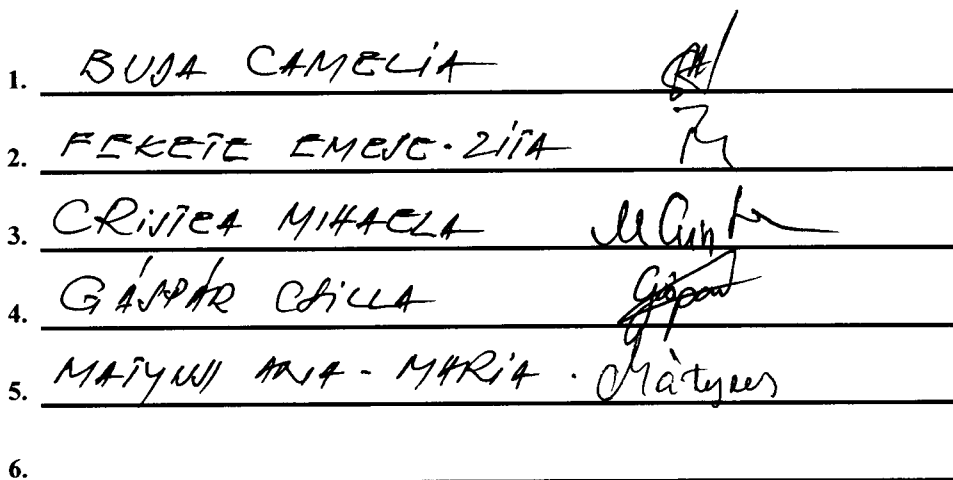 1. BUJA CAMELIA
2. FEKETE EMESE-ZITA
3. CRISTEA MIHAELA
4. GÁSPÁR CSILLA Gáspár
5. MATYUS ANA-MARIA.
6.